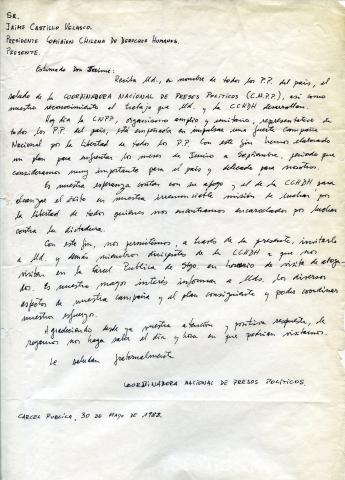 SR.
JAIME CASTILLO VELASCO.
PRESIDENTE COMISION CHILENA DE DERECHOS HUMANOS.
PRESENTE.
Estimado Don Jaime:
Reciba Ud., en nombre de todos los P.P. del país, el
saludo de la COORDINADORA NACIONAL DE PRESOS POLITICOS (C.N.P.P.), así como
nuestro reconocimiento al trabajo que Ud. y la CCHDH desarrollan.
Hoy día la CNPP, organismo amplio y unitario, representativo de
todos los P.P. del país, está empeñada en impulsar una fuerte Campaña
Nacional por la Libertad de todos los P.P. Con este fin hemos elaborado
un plan para enfrentar los meses de Junio a Septiembre, período que
consideramos muy importante para el país y delicado para nosotros.
Es nuestra esperanza contar con su apoyo y el de la CCHDH para
alcanzar el éxito en nuestra irrenunciable misión de luchar por
la libertad de todos quienes nos encontramos encarcelados por luchar
contra la dictadura.
Con este fin, nos permitimos, a través de la presente, invitarlo
a Ud. y demás miembros dirigentes de la CCHDH a que nos
visiten en la Cárcel Pública de Stgo. en horario de visita de aboga-
dos. Es nuestro mayor interés informar a Uds. los diversos
aspectos de nuestra campaña y el plan consiguiente y poder coordinar
nuestros esfuerzos.
Agradeciendo desde ya vuestra atención y positiva respuesta, le
rogamos nos haga saber el día y hora en que podrían visitarnos.
Le saludan fraternalmente
COORDINADORA NACIONAL DE PRESOS POLITICOS.
CARCEL PUBLICA, 30 DE MAYO DE 1988.